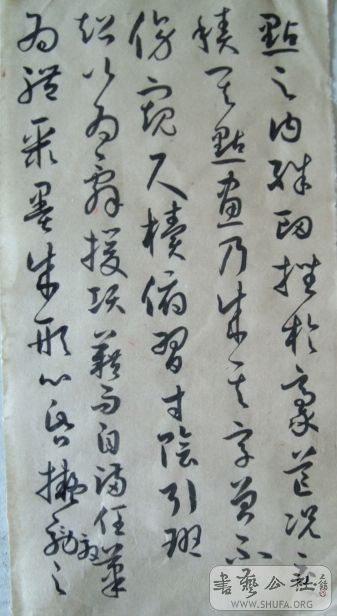 點之內殊衄挫於豪芒況云
積其點畫乃成其字曾不
傍窺尺櫝俯習寸陰引班
超以為辭援項籍而自滿任筆
為體聚墨成形心昏擬效之
書藝公社
WWW.SHUFA.ORG